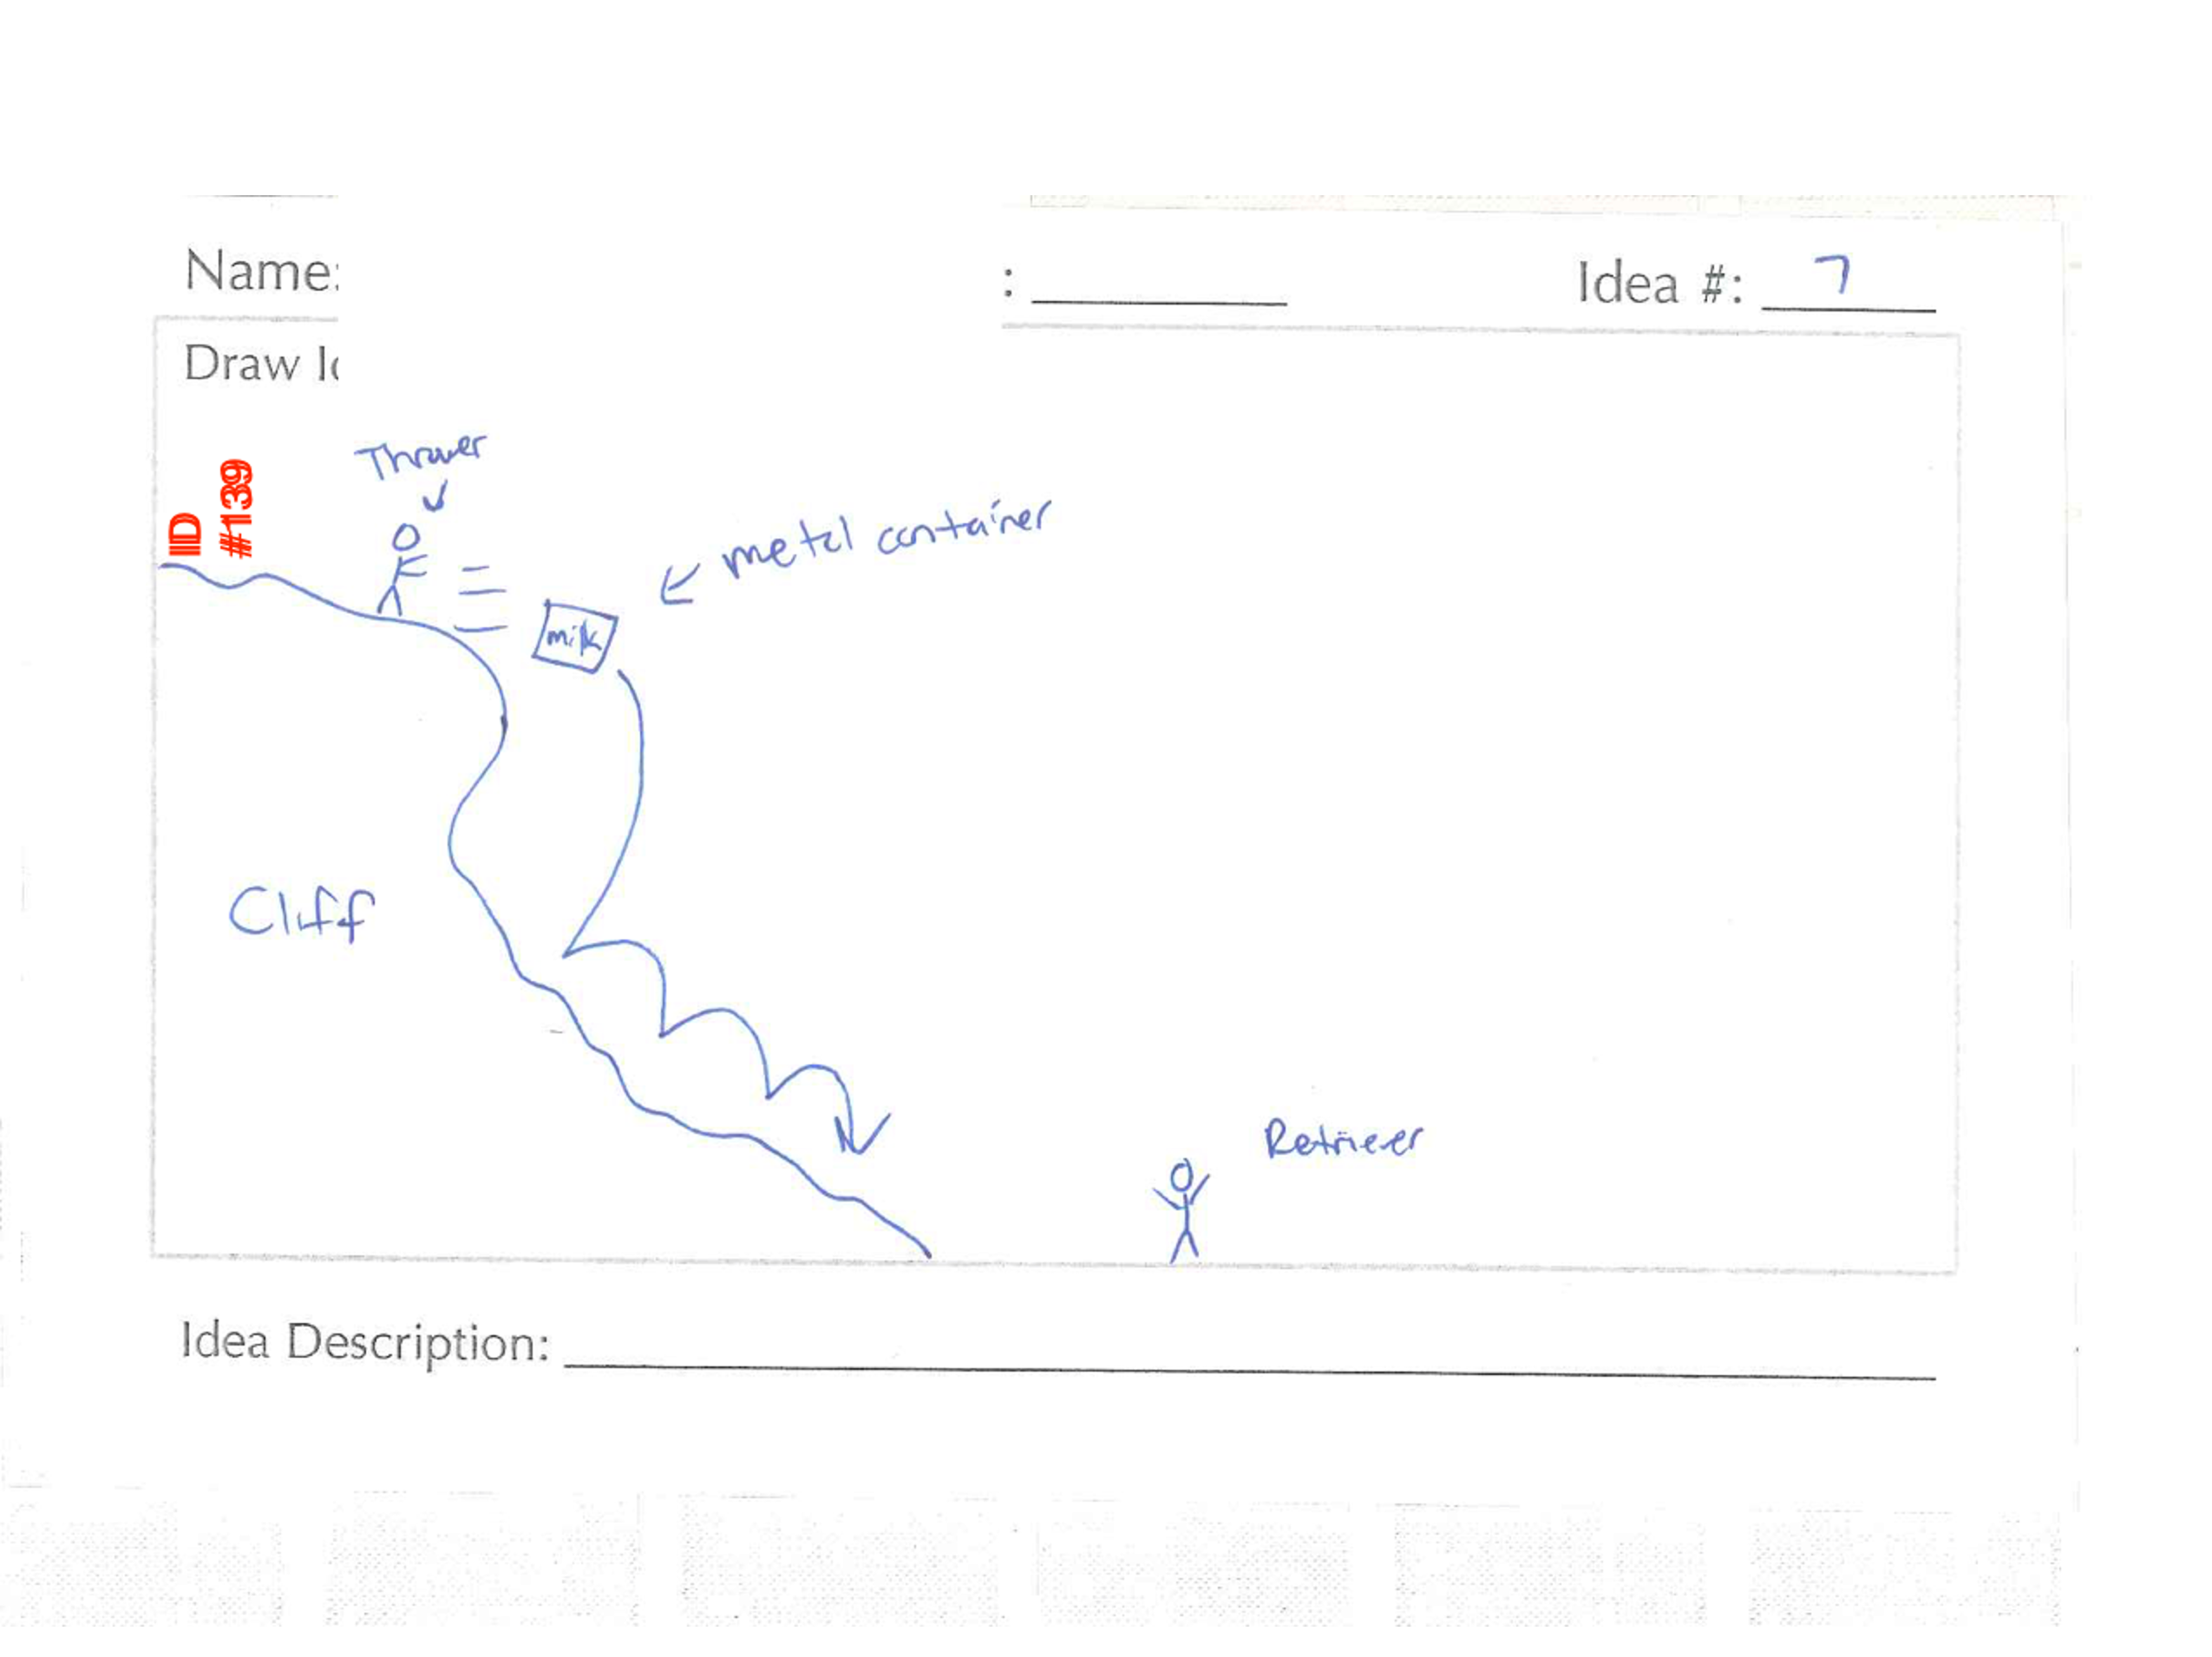 Name:
: Idea #: 7
Draw Id
IID
#139
Thrower
metal container
milk
Cliff
Retriever
Idea Description: